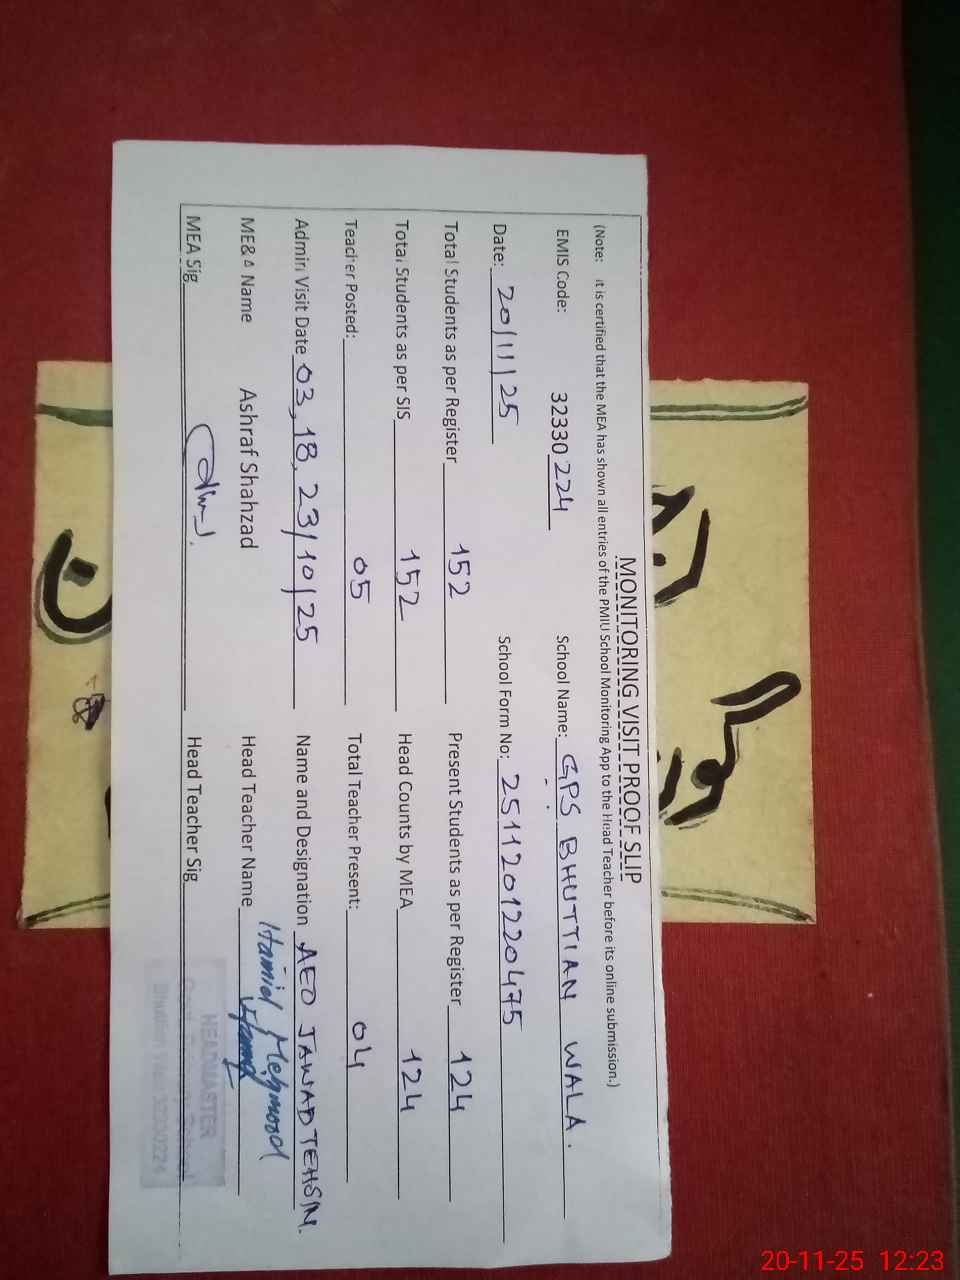 MONITORING VISIT PROOF SLIP
(Note: it is certified that the MEA has shown all entries of the PMIU School Monitoring App to the Head Teacher before its online submission.)
EMIS Code: 32330224 School Name: GPS BHUTTIAN WALA.
Date: 20/11/25 School Form No: 2511201220475
Total Students as per Register 152 Present Students as per Register 124
Total Students as per SIS 152 Head Counts by MEA 124
Teacher Posted: 05 Total Teacher Present: 04
Admin Visit Date 03, 18, 23/10/25 Name and Designation AEO JAWAD TEHSIN.
ME&A Name Ashraf Shahzad Head Teacher Name Hamid Mehmood
MEA Sig Head Teacher Sig
HEADMASTER
20-11-25 12:23